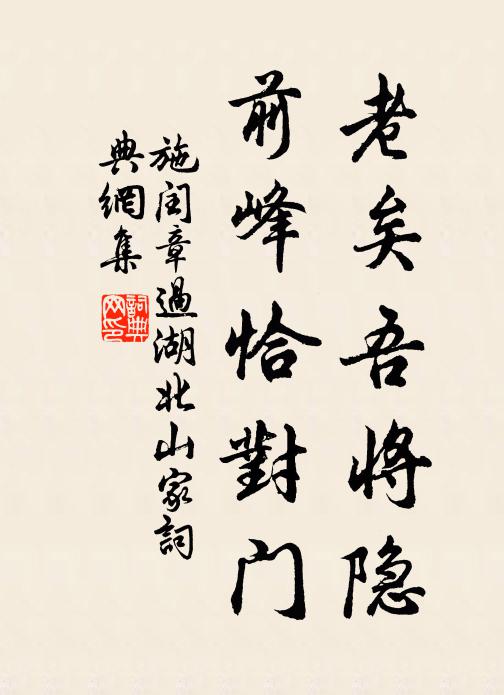 老矣吾将隐
前峰恰對门
施闰章過湖北山家詞
典網集
詞典网印